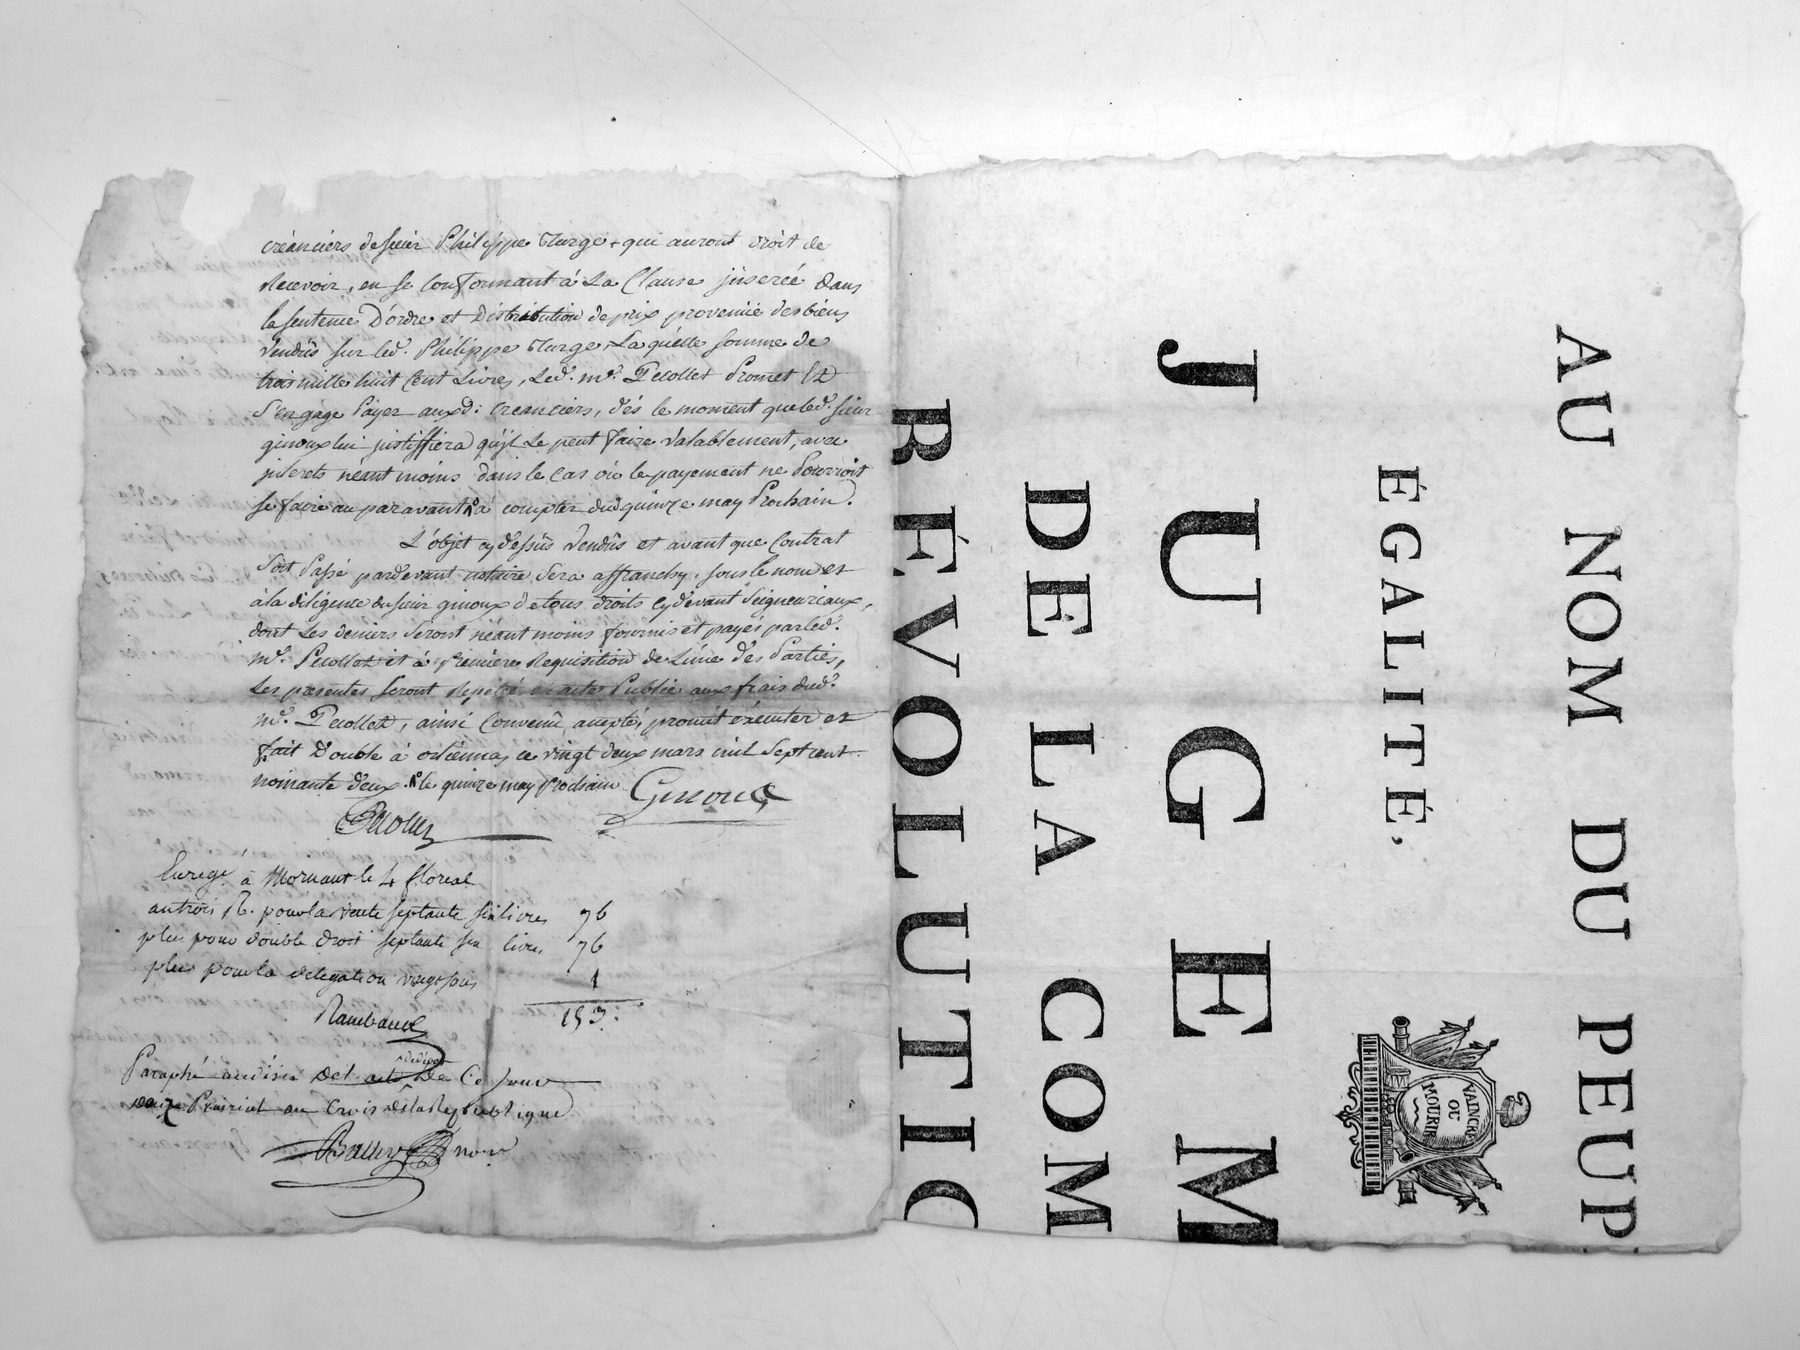 créanciers de sieur Philippe Turge + qui auront droit de
Recevoir, en se Conformant à La Clause jnserée Dans
la sentence D'ordre et Distribution de prix provenüe des biens
Vendûs sur led. Philippe Turge, La quelle somme de
trois mille huit Cent Livres, Led. mr. Pecollet Promet &
S'engage Payer auxd. Creanciers, dés le moment que led. sieur
ginoux lui justiffiera qu'jl Le peut faire Valablement, avec
jnterets néant moins dans le Cas où le payement ne Pourroit
se faire au paravant à compter dud quinze may Prochain.
L'objet cy dessûs Vendûs et avant que Contrat
Soit Passé pardevant notaire Sera affranchy, sous le nom et
à la diligence du sieur ginoux de tous droits Cy devant Seigneuriaux,
dont Les deniers Seront néant moins fournis et payés par led.
mr. Pecollet et à première Requisition de L'une des Parties,
Les presentes seront Repétée en acte Public aux frais dud.
mr. Pecollet, ainsi Convenû, accepté, promit éxécuter et
fait Double à orliennas ce vingt deux mars mil Sept cent
nonante deux. le quinze may Prochain Ginoux
Pecollet
Enregé à Mornant le 4 floreal
an trois R. pour la vente septante six livres 76
plus pour double droit septante six livres 76
plus pour la délegation vingt sous 1
Rambaud 153.
Paraphé au désir De l'acte de dépot De Ce jour
Prairial an trois de la Republique
AU NOM DU PEUP
ÉGALITÉ,
VAINCRE
OU
MOURIR
JUGEM
DE LA COM
RÉVOLUTIO